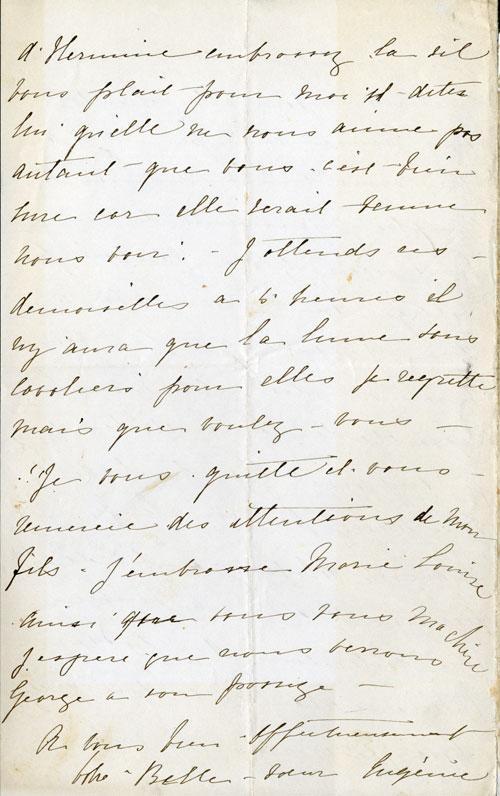 d'Hermine embrassez la sil
vous plait pour moi et dites
lui qu'elle ne nous aime pas
autant que vous c'est bien
sure car elle serait venue
nous voir. - J'attends ces
demoiselles a 6 heures il
n'y aura que la lune sous
cavaliers pour elles je regrette
mais que voulez-vous -
Je vous quitte et vous
remercie des attentions de mon
fils - J'embrasse Marie Louise
ainsi que tous vous ma chère
j'espere que nous verrons
George a son passage -
A vous bien affectueusement
votre Belle-soeur Eugénie